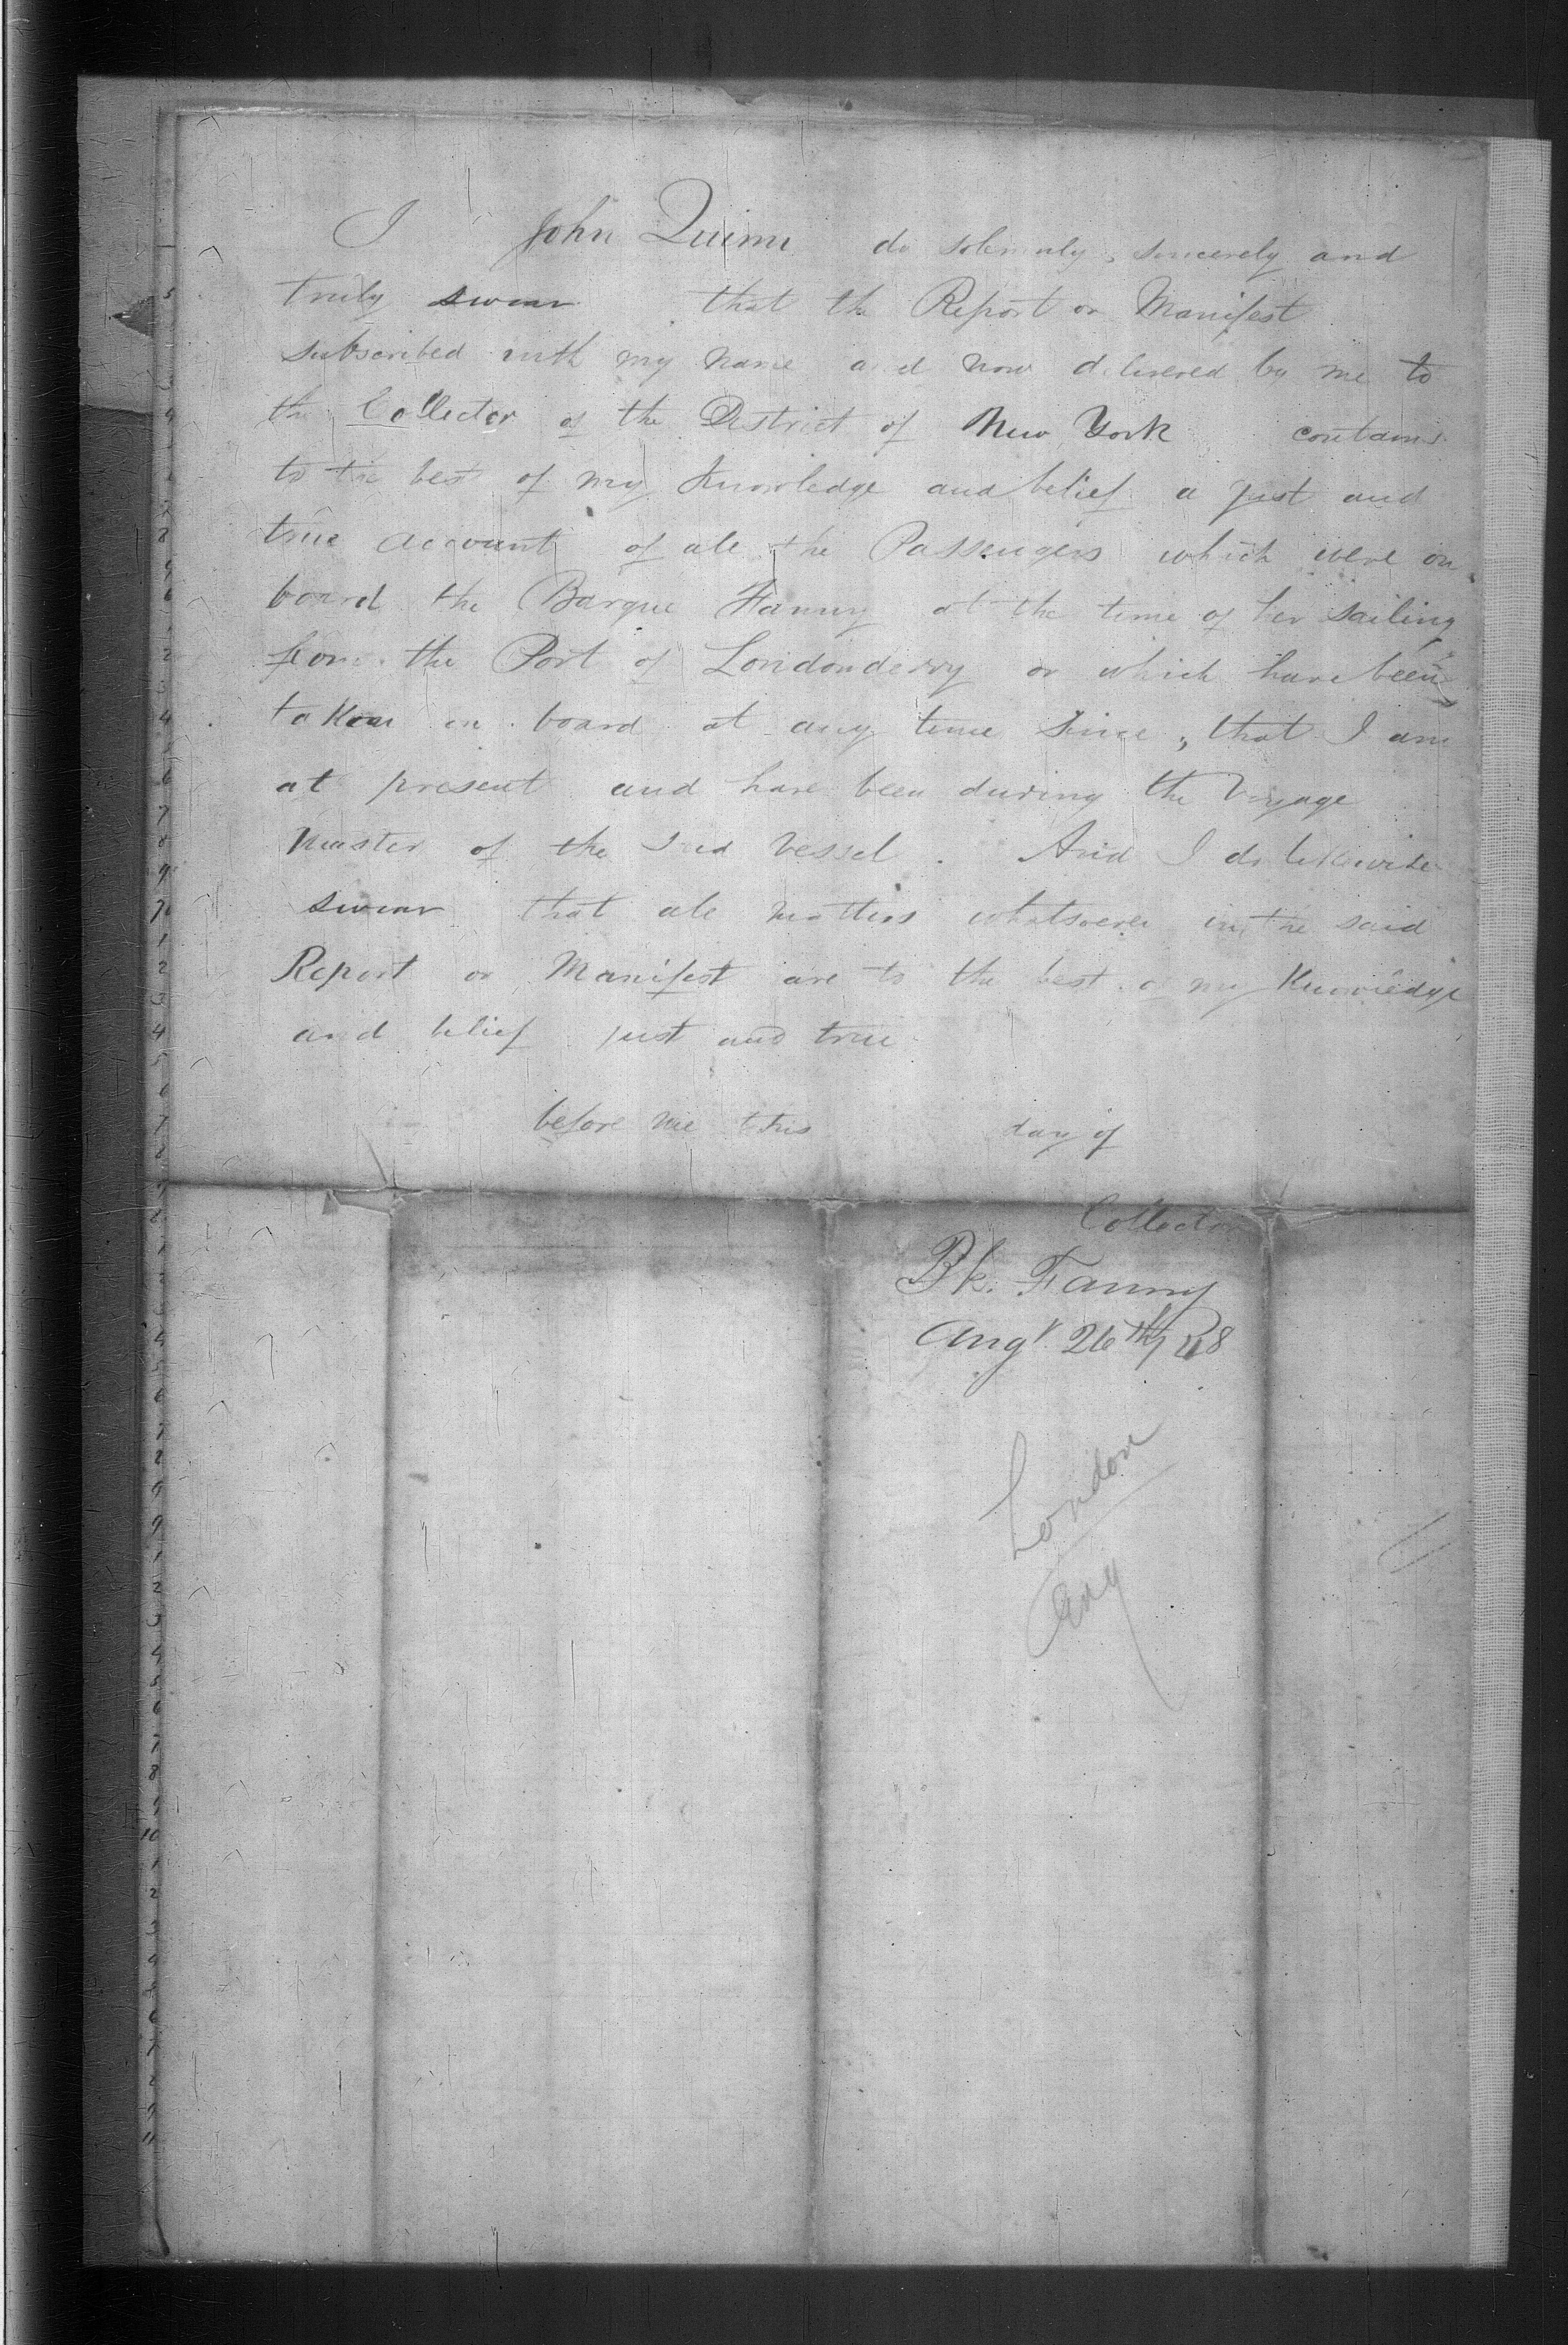 I John Quinn do solemnly, sincerely and
truly swear that the Report or Manifest
subscribed with my name and now delivered by me to
the Collector of the District of New York contains
to the best of my Knowledge and belief a just and
true account of all the Passengers which were on
board the Barque Fanny at the time of her sailing
from the Port of Londonderry or which have been
taken on board at any time since, that I am
at present and have been during the Voyage
Master of the said Vessel. And I do likewise
swear that all matters whatsoever in the said
Report or Manifest are to the best of my Knowledge
and belief just and true
before me this day of
Collector
Bk. Fanny
Augt 26th
London